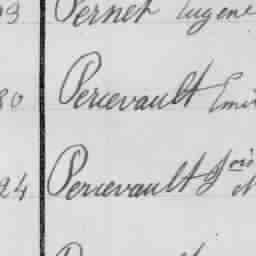 93 Pernet Eugène
80 Percevault Emi
24 Percevault Fois